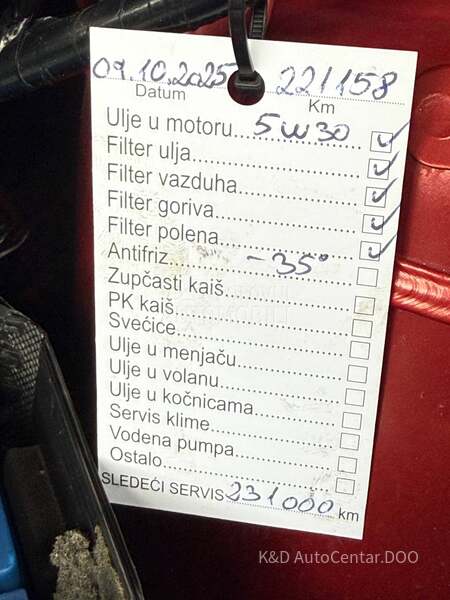 09.10.2025 221158
Datum Km
Ulje u motoru 5W30 ✓
Filter ulja ✓
Filter vazduha ✓
Filter goriva ✓
Filter polena ✓
Antifriz -35°
Zupčasti kaiš
PK kaiš
Svećice
Ulje u menjaču
Ulje u volanu
Ulje u kočnicama
Servis klime
Vodena pumpa
Ostalo
SLEDEĆI SERVIS 231000 km
K&D AutoCentar.DOO